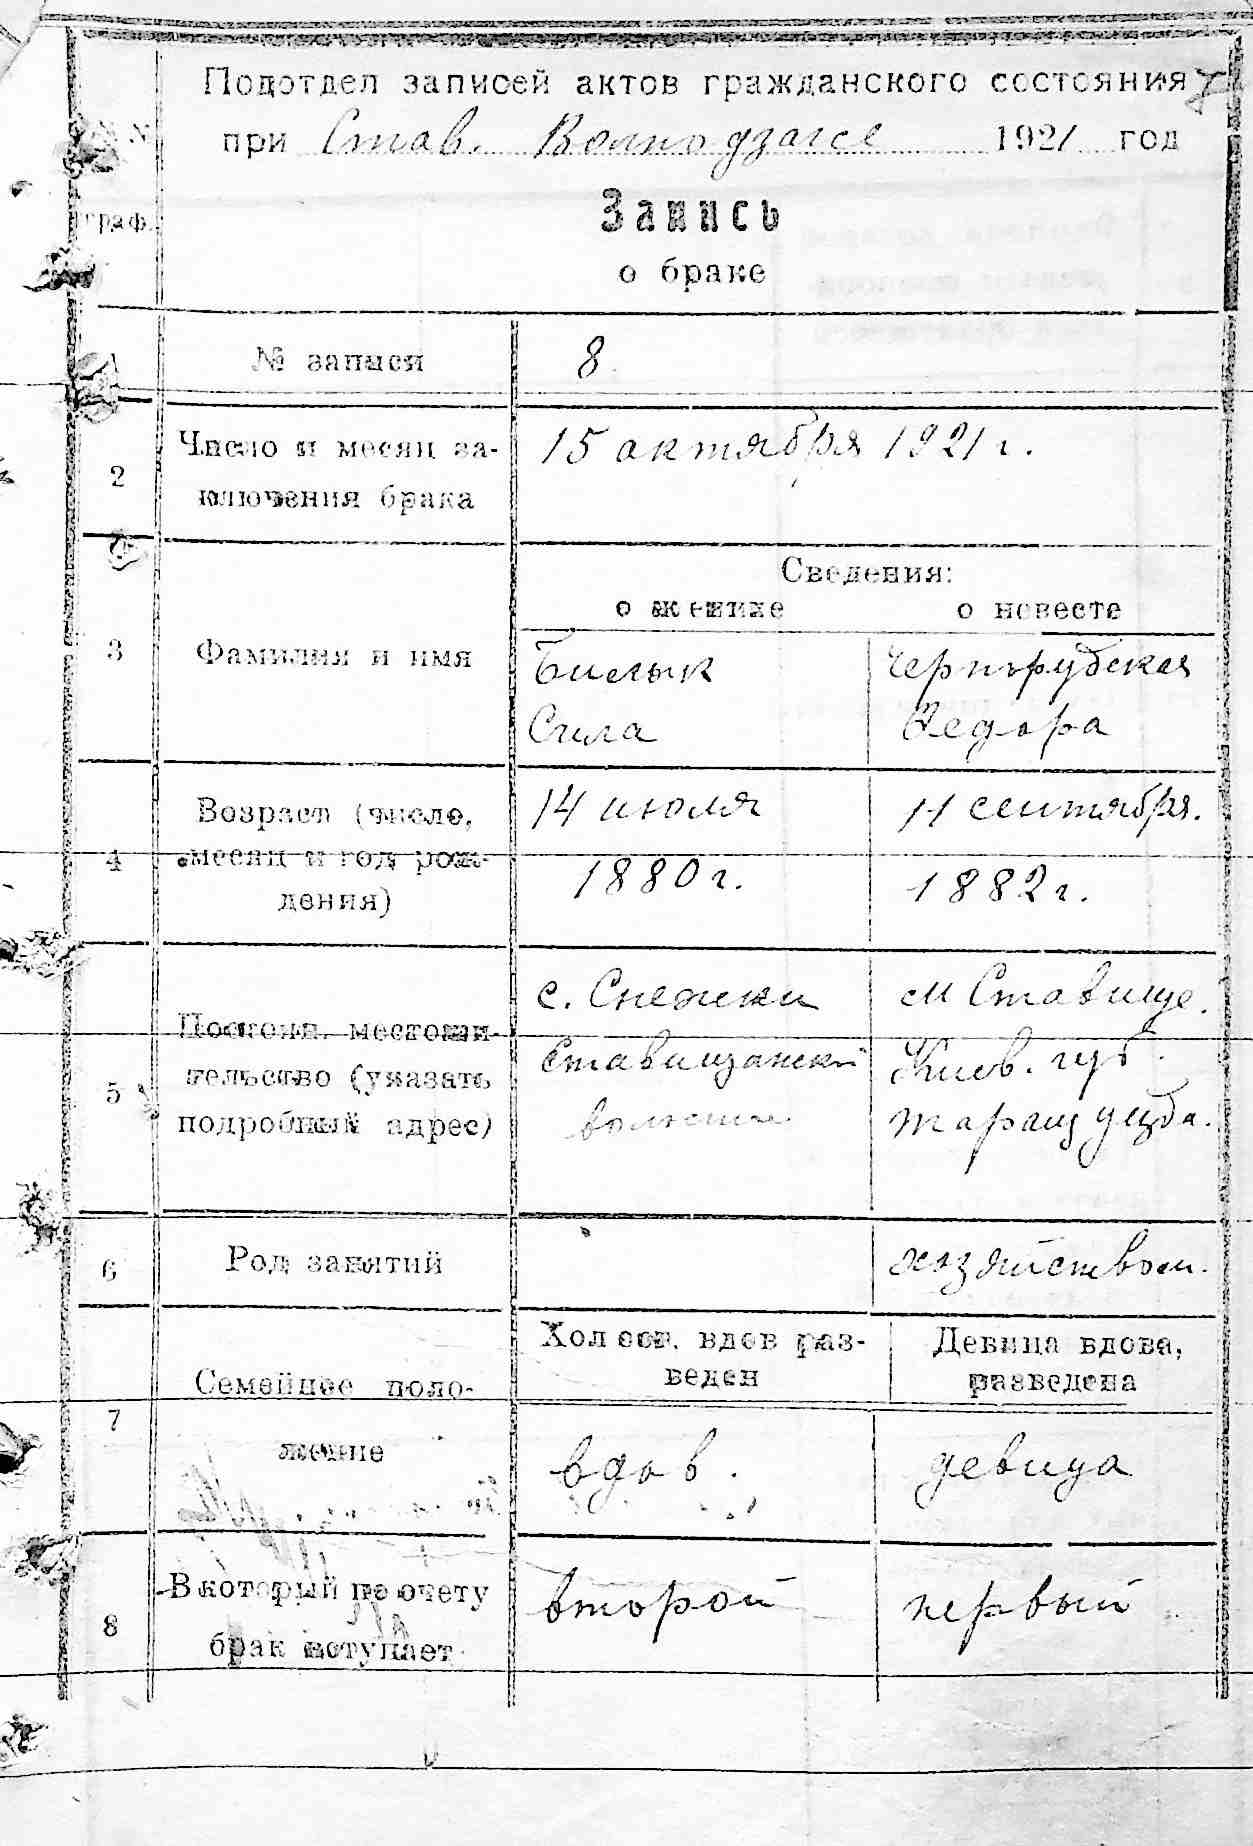 Подотдел записей актов гражданского состояния
при Став. 1921 год
№
граф.
Запись
о браке
1 № записи 8
2 Число и месяц за-
ключения брака
15 октября 1921 г.
Сведения:
о женихе о невесте
3 Фамилия и имя
Билык Чернорубская
Сила Федора
4 Возраст (число,
месяц и год рож-
дения)
14 июля 11 сентября.
1880 г. 1882 г.
5 Постоян. местожи-
тельство (указать
подробный адрес)
с. Снежки м Ставище.
Ставищанской Киев. губ.
волости Таращ уезда.
6 Род занятий хозяйством.
7 Семейное поло-
жение
Холост. вдов раз-
веден
Девица вдова,
разведена
вдов. девица
8 В который по счету
брак вступает
второй первый